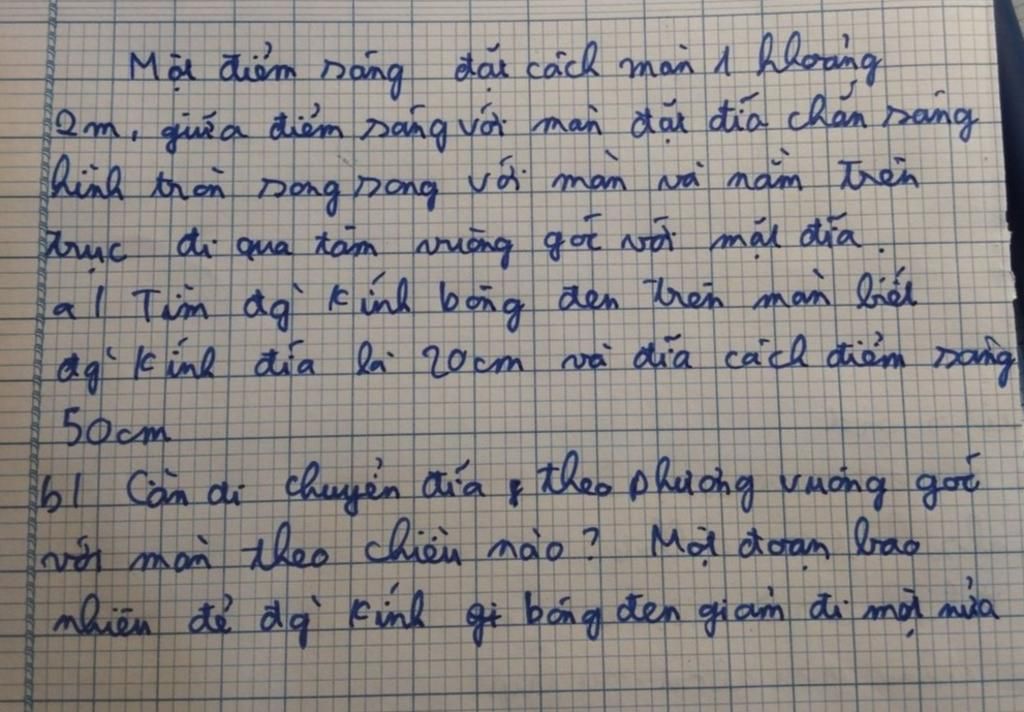 Một điểm sáng đặt cách màn 1 khoảng
2m, giữa điểm sáng với màn đặt đĩa chắn sáng
hình tròn song song với màn và nằm trên
trục đi qua tâm vuông góc với mặt đĩa.
a/ Tìm đg` kính bóng đen trên màn biết
đg` kính đĩa là 20cm và đĩa cách điểm sáng
50cm
b/ Cần di chuyển đĩa theo phương vuông góc
với màn theo chiều nào? Một đoạn bao
nhiêu để đg` kính bóng đen giảm đi một nửa